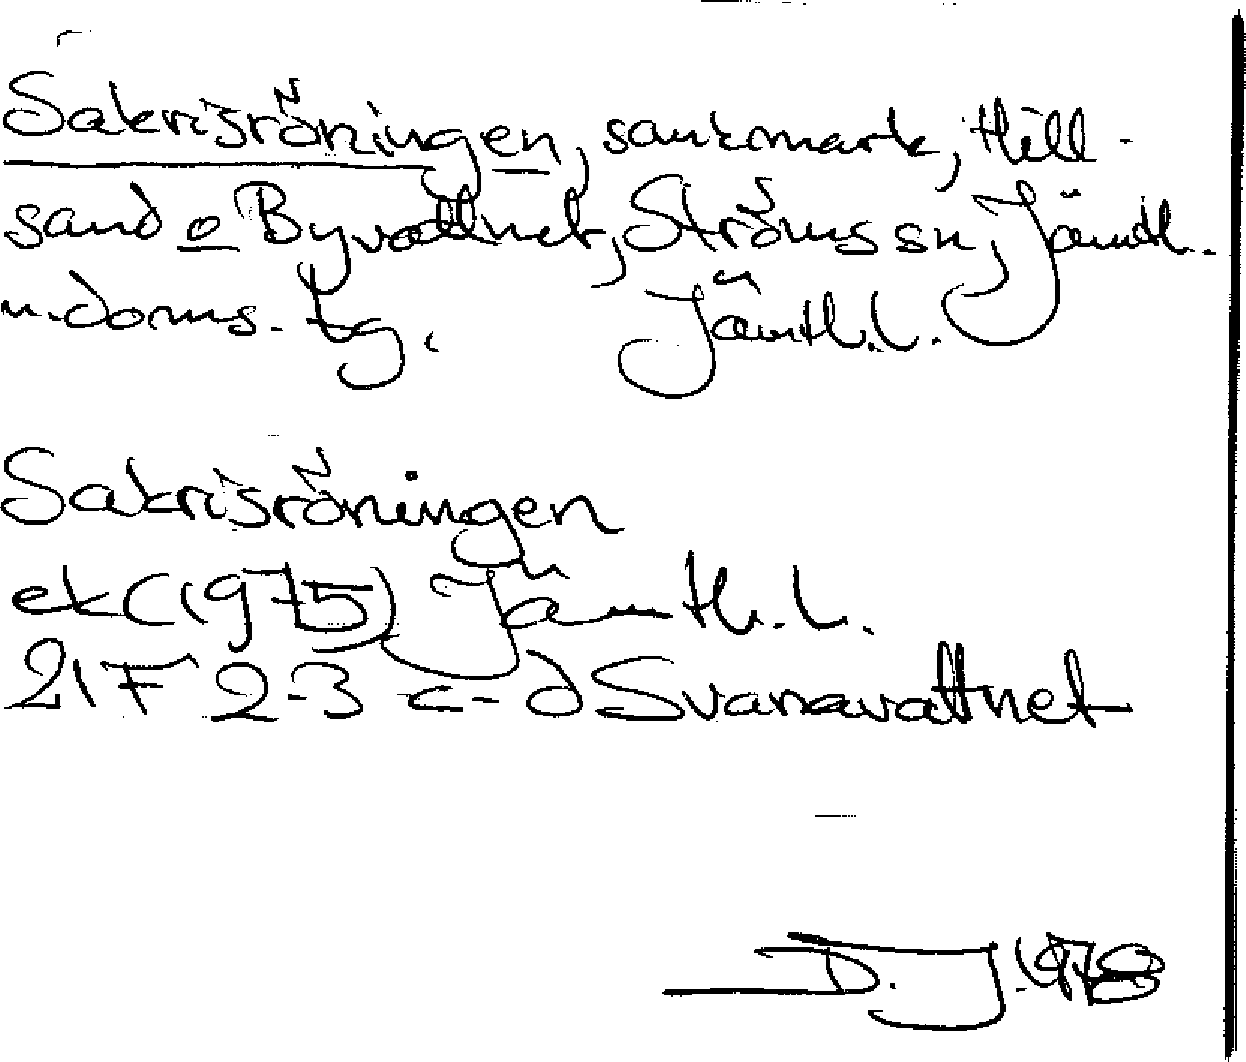 Sakrisröningen, sankmark, Hill-
sand o Byvattnet, Ströms sn, Jämtl.
n. doms. tg. Jämtl. l.
Sakrisröningen
ek (1975) Jämtl. l.
21F 2-3 c-d Svanavattnet
D. J. 1978